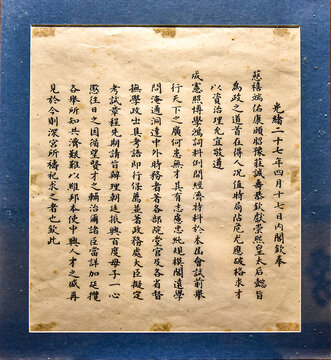 光緒二十七年四月十七日內閣欽奉
慈禧端佑康頤昭豫莊誠壽恭欽獻崇熙皇太后懿旨
為政之道首在得人況值時局阽危尤應破格求才
以資治理允宜敬遵
成憲照博學鴻詞科例開經濟特科於本屆會試前舉
行天下之廣何患無才其有志慮忠純規模閎遠學
問淹通洞達中外時務者著各部院堂官及各省督
撫學政出具考語即行保薦並著政務處大臣擬定
考試章程先期請旨辦理朝廷振興百度母子一心
懲往日之因循望賢才之輔治爾諸臣當詳加延攬
各舉所知共濟艱難以維邦本使中興人才之盛再
見於今則深宮所禱祀求之者也欽此